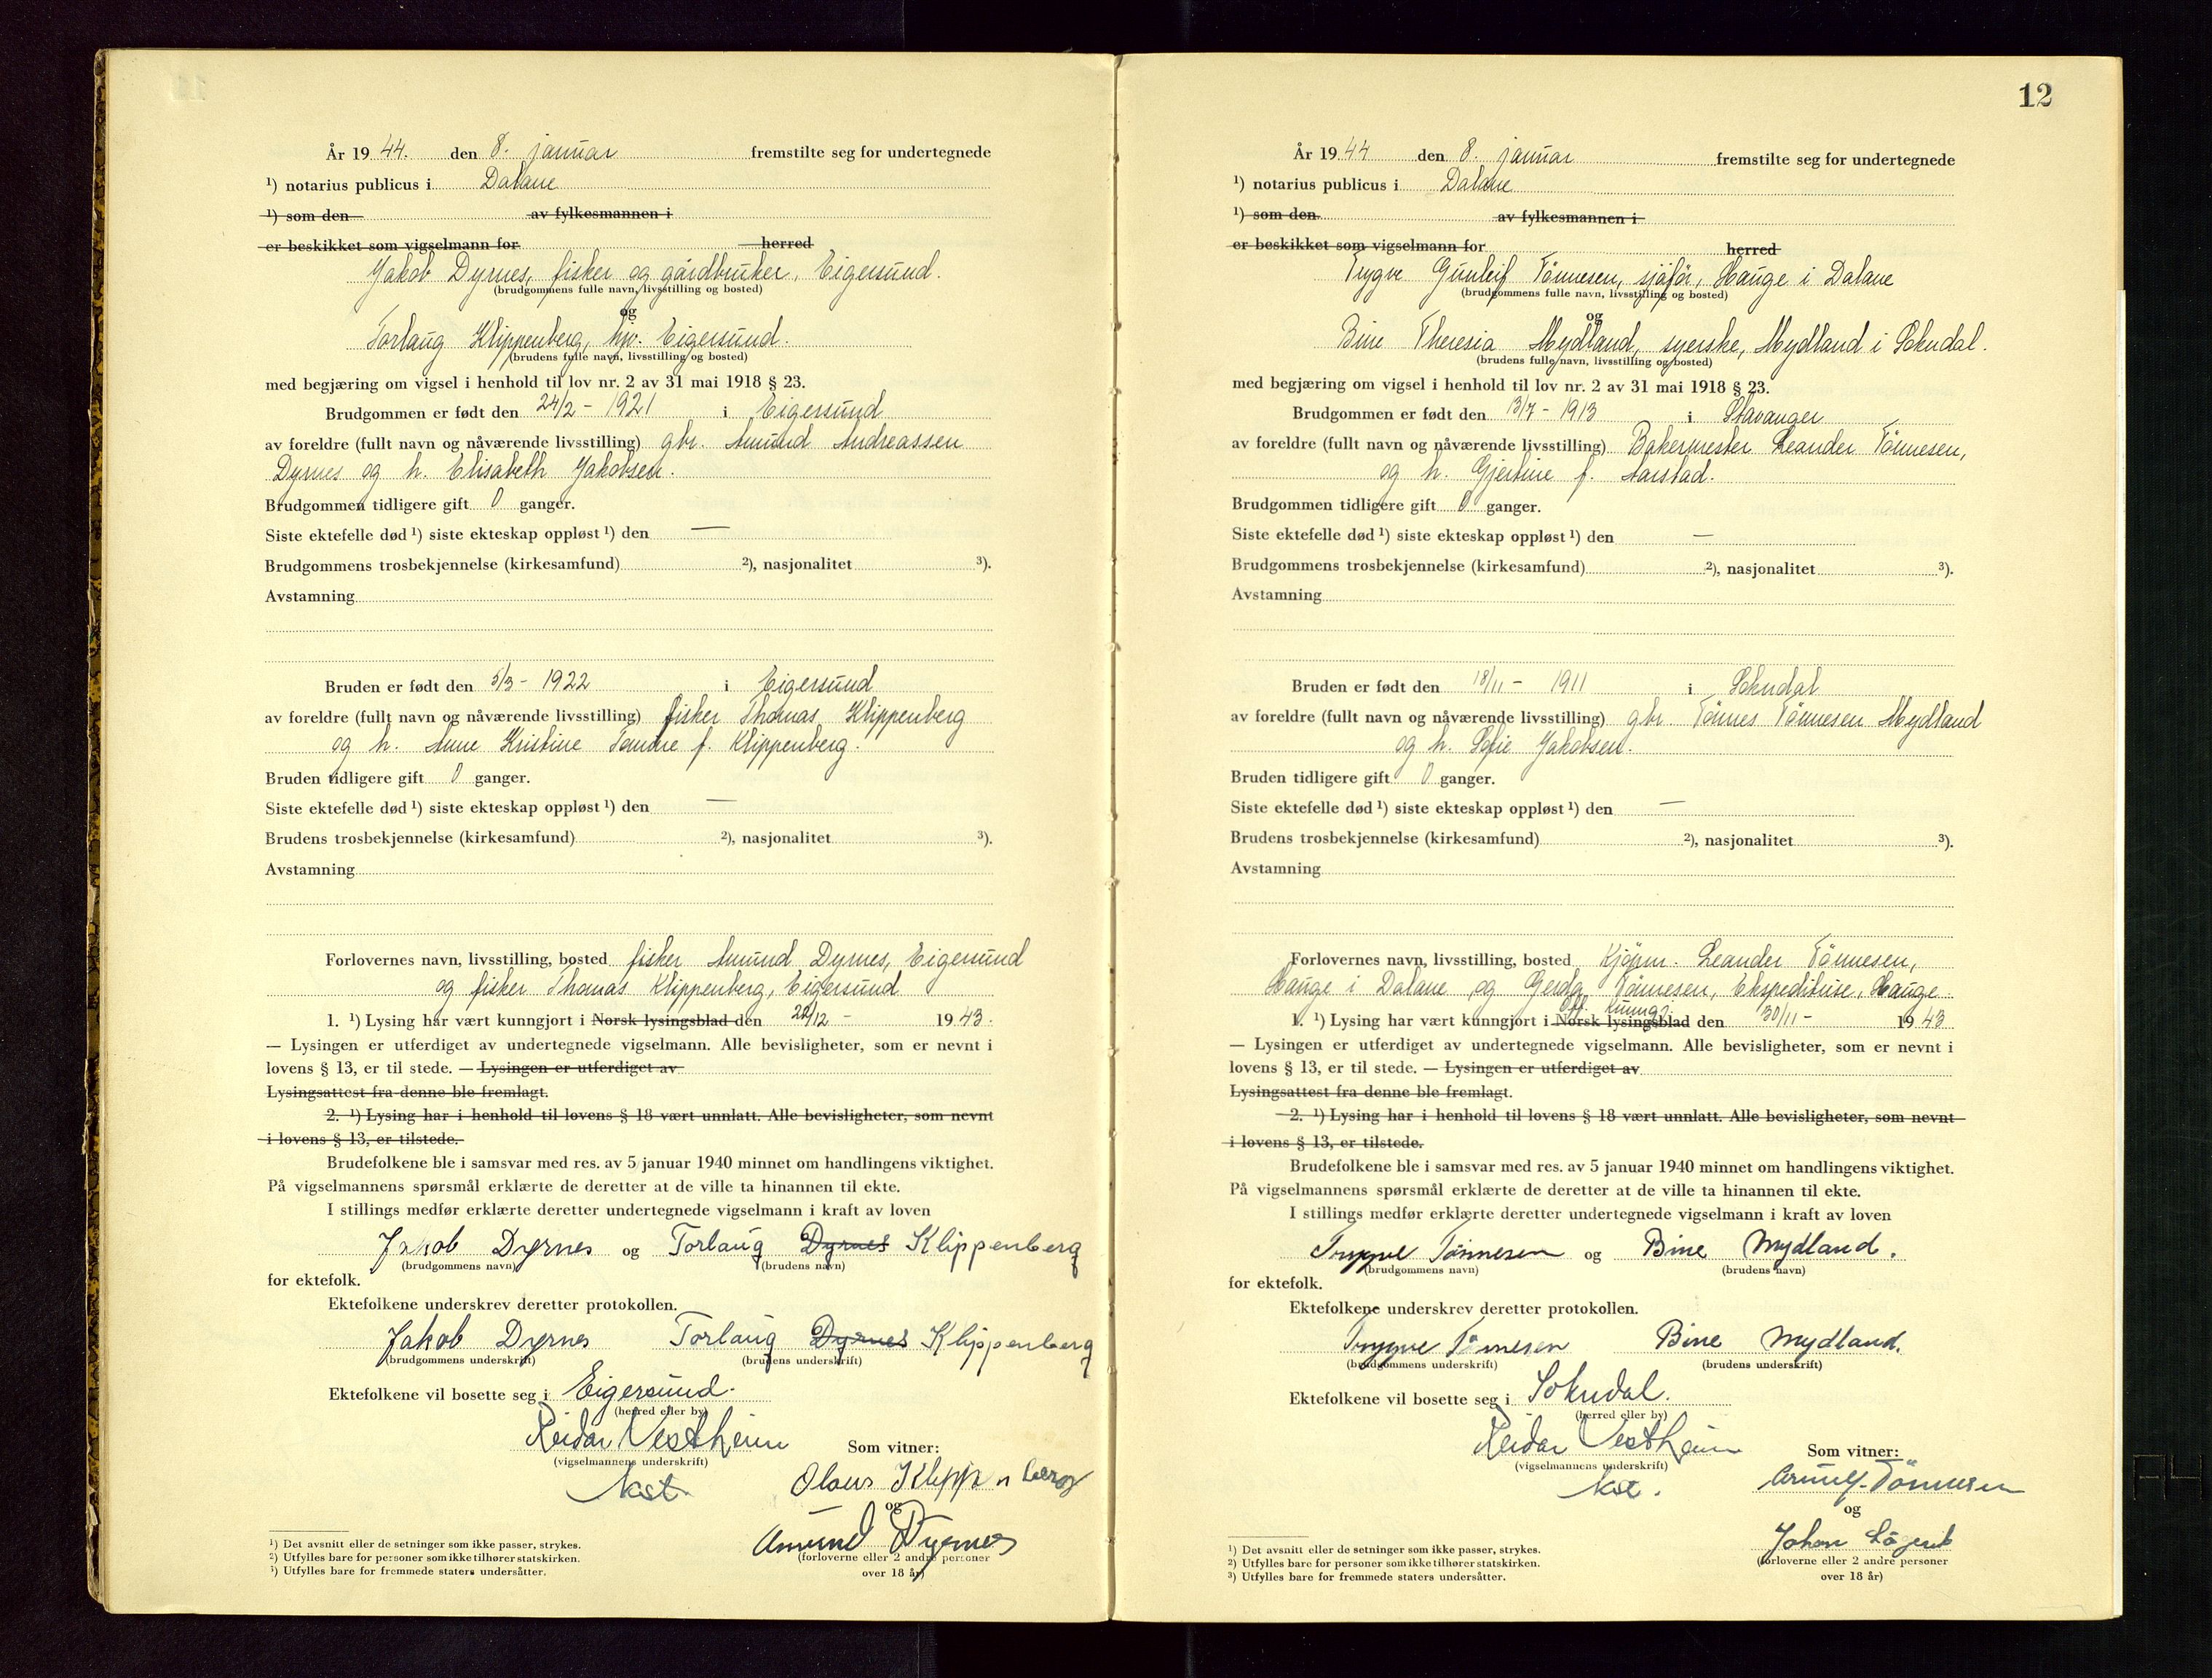 År 19 44. den 8. januar fremstilte seg for undertegnede
¹) notarius publicus i Dalane
¹) som den av fylkesmannen i
er beskikket som vigselmann for herred
Jakob Dyrnes, fisker og gårdbruker, Eigersund.
(brudgommens fulle navn, livsstilling og bosted)
og
Torlaug Klippenberg, hjv. Eigersund.
(brudens fulle navn, livsstilling og bosted)
med begjæring om vigsel i henhold til lov nr. 2 av 31 mai 1918 § 23.
Brudgommen er født den 24/2 - 1921 i Eigersund
av foreldre (fullt navn og nåværende livsstilling) gbr. Amund Andreassen
Dyrnes og h. Elisabeth Jakobsen.
Brudgommen tidligere gift 0 ganger.
Siste ektefelle død ¹) siste ekteskap oppløst ¹) den —
Brudgommens trosbekjennelse (kirkesamfund) ²), nasjonalitet ³).
Avstamning
Bruden er født den 5/3 - 1922 i Eigersund
av foreldre (fullt navn og nåværende livsstilling) fisker Thomas Klippenberg
og h. Anne Kristine Tomine f. Klippenberg.
Bruden tidligere gift 0 ganger.
Siste ektefelle død ¹) siste ekteskap oppløst ¹) den —
Brudens trosbekjennelse (kirkesamfund) ²), nasjonalitet ³).
Avstamning
Forlovernes navn, livsstilling, bosted fisker Amund Dyrnes, Eigersund
og fisker Thomas Klippenberg, Eigersund
1. ¹) Lysing har vært kunngjort i Norsk lysingsblad den 22/12 - 19 43.
— Lysingen er utferdiget av undertegnede vigselmann. Alle bevisligheter, som er nevnt i
lovens § 13, er til stede. — Lysingen er utferdiget av
Lysingsattest fra denne ble fremlagt.
2. ¹) Lysing har i henhold til lovens § 18 vært unnlatt. Alle bevisligheter, som nevnt
i lovens § 13, er tilstede.
Brudefolkene ble i samsvar med res. av 5 januar 1940 minnet om handlingens viktighet.
På vigselmannens spørsmål erklærte de deretter at de ville ta hinannen til ekte.
I stillings medfør erklærte deretter undertegnede vigselmann i kraft av loven
Jakob Dyrnes og Torlaug Dyrnes Klippenberg
(brudgommens navn) (brudens navn)
for ektefolk.
Ektefolkene underskrev deretter protokollen.
Jakob Dyrnes Torlaug Dyrnes Klippenberg
(brudgommens underskrift) (brudens underskrift)
Ektefolkene vil bosette seg i Eigersund.
(herred eller by)
Reidar Vestheim
(vigselmannens underskrift)
kst.
Som vitner:
Olaus Klippenberg
og
Amund Dyrnes
(forloverne eller 2 andre personer
over 18 år)
¹) Det avsnitt eller de setninger som ikke passer, strykes.
²) Utfylles bare for personer som ikke tilhører statskirken.
³) Utfylles bare for fremmede staters undersåtter.
12
År 19 44 den 8. januar fremstilte seg for undertegnede
¹) notarius publicus i Dalane
¹) som den av fylkesmannen i
er beskikket som vigselmann for herred
Trygve Gunleif Tönnesen, sjåför, Hauge i Dalane
(brudgommens fulle navn, livsstilling og bosted)
og
Bine Theresia Mydland, syerske, Mydland i Sokndal.
(brudens fulle navn, livsstilling og bosted)
med begjæring om vigsel i henhold til lov nr. 2 av 31 mai 1918 § 23.
Brudgommen er født den 13/7 - 1913 i Stavanger
av foreldre (fullt navn og nåværende livsstilling) Bakermester Leander Tönnesen,
og h. Gjertine f. Aarstad.
Brudgommen tidligere gift 0 ganger.
Siste ektefelle død ¹) siste ekteskap oppløst ¹) den —
Brudgommens trosbekjennelse (kirkesamfund) ²), nasjonalitet ³).
Avstamning
Bruden er født den 18/11 - 1911 i Sokndal
av foreldre (fullt navn og nåværende livsstilling) gbr. Tönnes Tönnesen Mydland
og h. Sofie Jakobsen.
Bruden tidligere gift 0 ganger.
Siste ektefelle død ¹) siste ekteskap oppløst ¹) den —
Brudens trosbekjennelse (kirkesamfund) ²), nasjonalitet ³).
Avstamning
Forlovernes navn, livsstilling, bosted Kjöpm. Leander Tönnesen,
Hauge i Dalane og Gerda Tönnesen, Ekspeditrise, Hauge.
off. kunngj.
1. ¹) Lysing har vært kunngjort i Norsk lysingsblad den 30/11 - 19 43
— Lysingen er utferdiget av undertegnede vigselmann. Alle bevisligheter, som er nevnt i
lovens § 13, er til stede. — Lysingen er utferdiget av
Lysingsattest fra denne ble fremlagt.
2. ¹) Lysing har i henhold til lovens § 18 vært unnlatt. Alle bevisligheter, som nevnt
i lovens § 13, er tilstede.
Brudefolkene ble i samsvar med res. av 5 januar 1940 minnet om handlingens viktighet.
På vigselmannens spørsmål erklærte de deretter at de ville ta hinannen til ekte.
I stillings medfør erklærte deretter undertegnede vigselmann i kraft av loven
Trygve Tönnesen og Bine Mydland.
(brudgommens navn) (brudens navn)
for ektefolk.
Ektefolkene underskrev deretter protokollen.
Trygve Tönnesen Bine Mydland.
(brudgommens underskrift) (brudens underskrift)
Ektefolkene vil bosette seg i Sokndal.
(herred eller by)
Reidar Vestheim
(vigselmannens underskrift)
kst.
Som vitner:
Tönnesen
og
Johan
(forloverne eller 2 andre personer
over 18 år)
¹) Det avsnitt eller de setninger som ikke passer, strykes.
²) Utfylles bare for personer som ikke tilhører statskirken.
³) Utfylles bare for fremmede staters undersåtter.